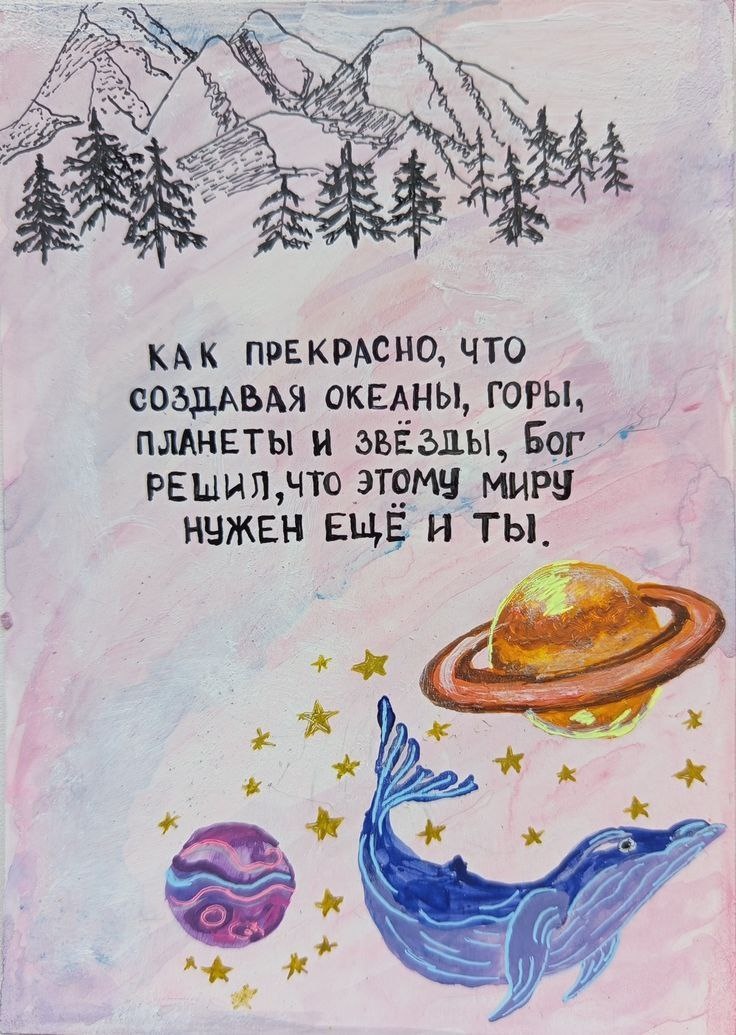 КАК ПРЕКРАСНО, ЧТО
СОЗДАВАЯ ОКЕАНЫ, ГОРЫ,
ПЛАНЕТЫ И ЗВЁЗДЫ, БОГ
РЕШИЛ, ЧТО ЭТОМУ МИРУ
НУЖЕН ЕЩЁ И ТЫ.